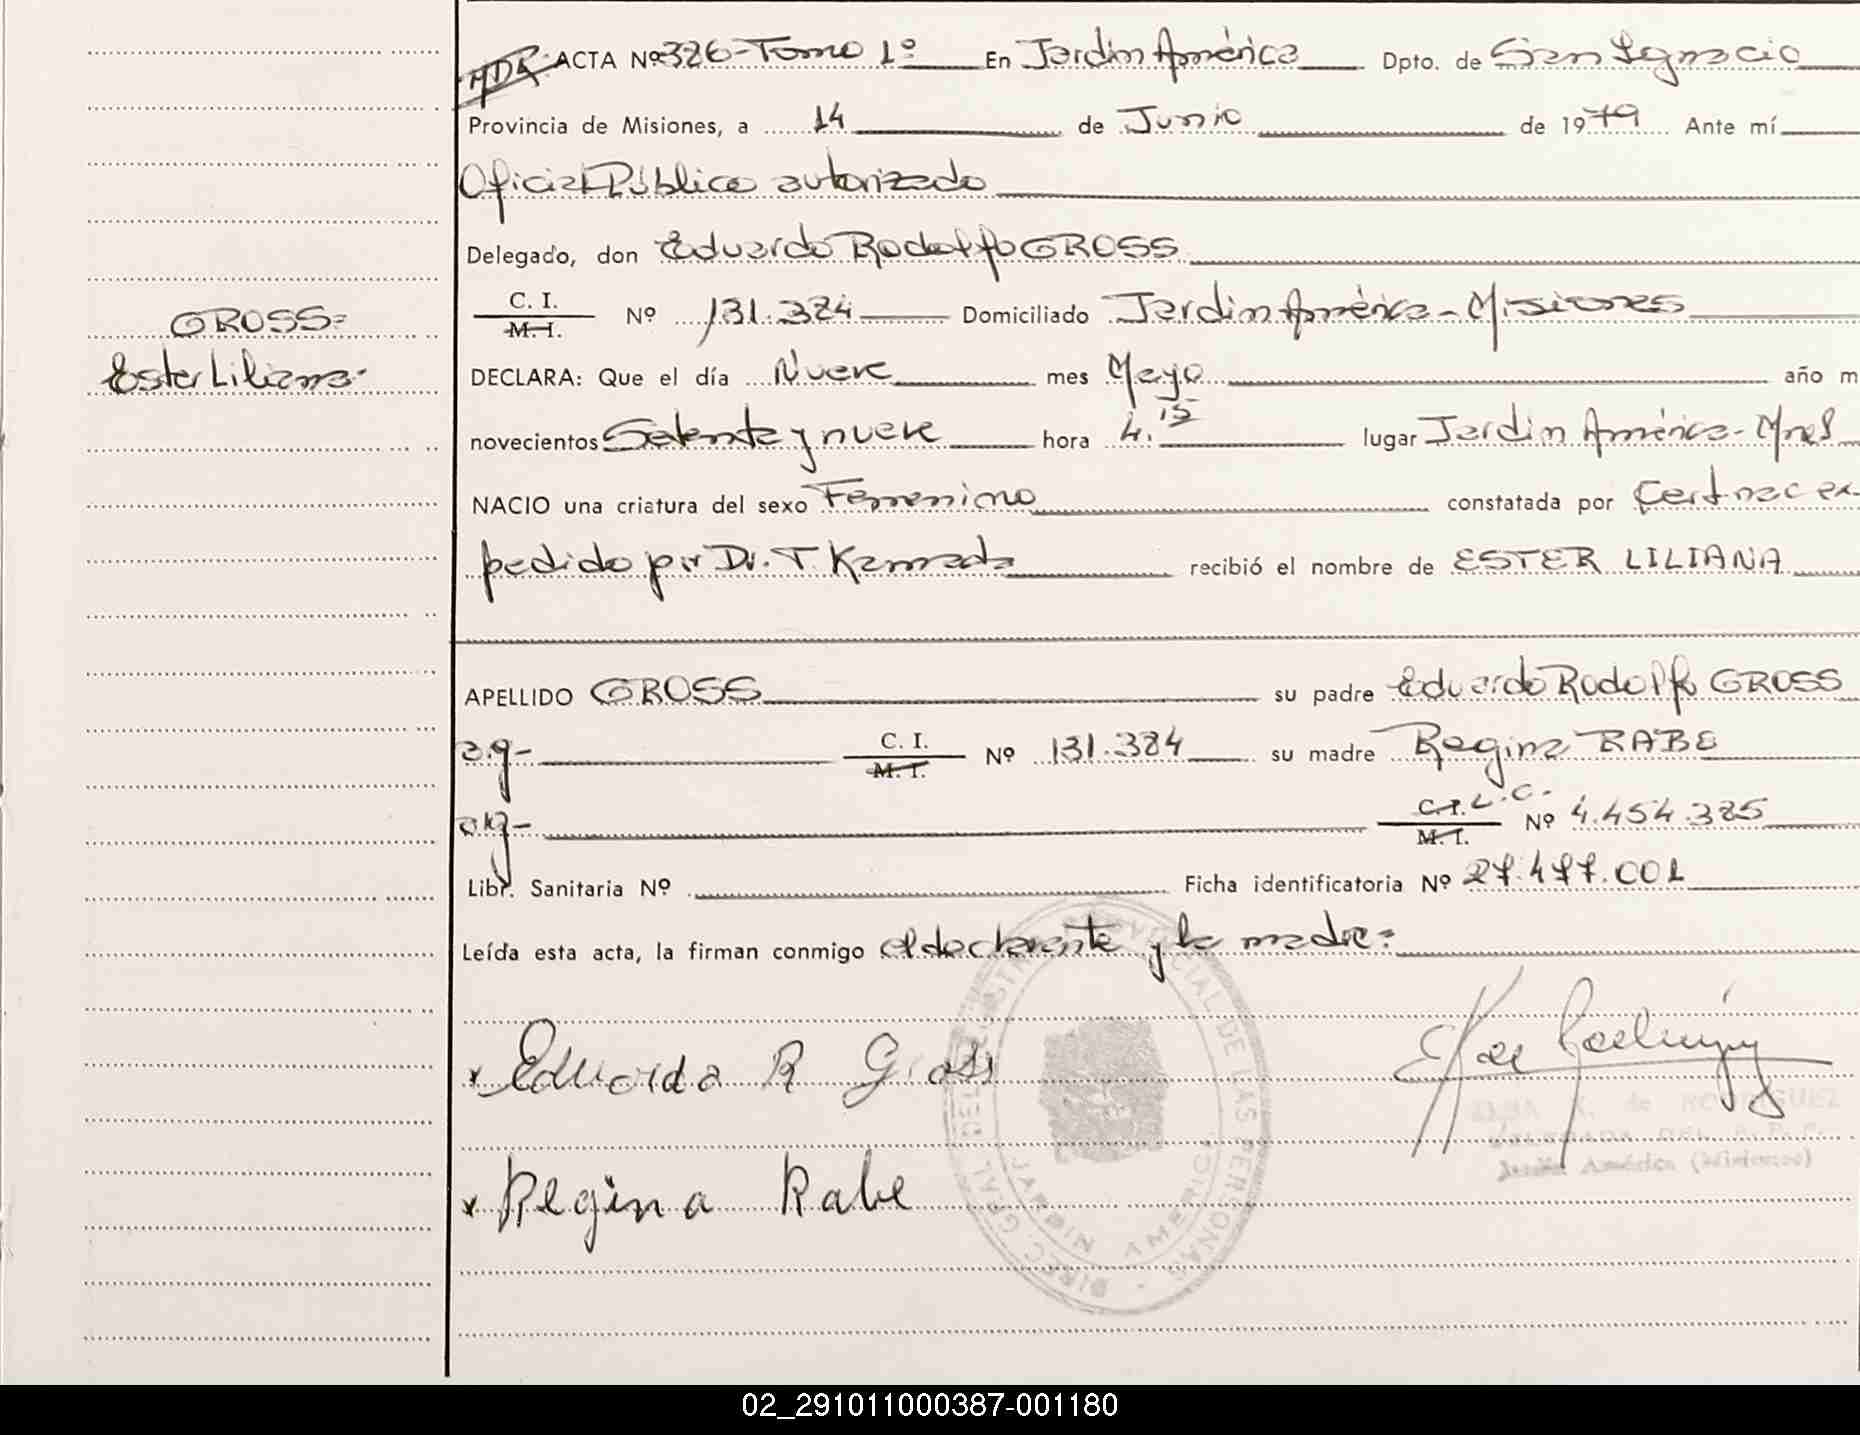 ACTA Nº 326-Tomo 1º En Jardin América Dpto. de San Ignacio
Provincia de Misiones, a 14 de Junio de 1979 Ante mí
Oficial Público autorizado
Delegado, don Eduardo Rodolfo GROSS
C. I.
M. I.
Nº 131.384 Domiciliado Jardin América - Misiones
GROSS=
Ester Liliana-
DECLARA: Que el día Nueve mes Mayo año m
novecientos Setenta y nueve hora 4.15 lugar Jardin América - Mnes
NACIO una criatura del sexo Femenino constatada por Cert nac ex-
pedido por Dr. T. Kamada recibió el nombre de ESTER LILIANA
APELLIDO GROSS su padre Eduardo Rodolfo GROSS
a.g- C. I. M. I. Nº 131.384 su madre Regina RABE
C. I. L.C. M. I. Nº 4.454.385
Libr. Sanitaria Nº Ficha identificatoria Nº 27.477.001
Leída esta acta, la firman conmigo el declarante y la madre=
x Eduardo R Gross
ELBA K. de RODRIGUEZ
DELEGADA DEL R. P. P.
Jardín América (Misiones)
x Regina Rabe
DIREC. GRAL. DEL REGISTRO PROVINCIAL DE LAS PERSONAS
JARDIN AMERICA
02_291011000387-001180